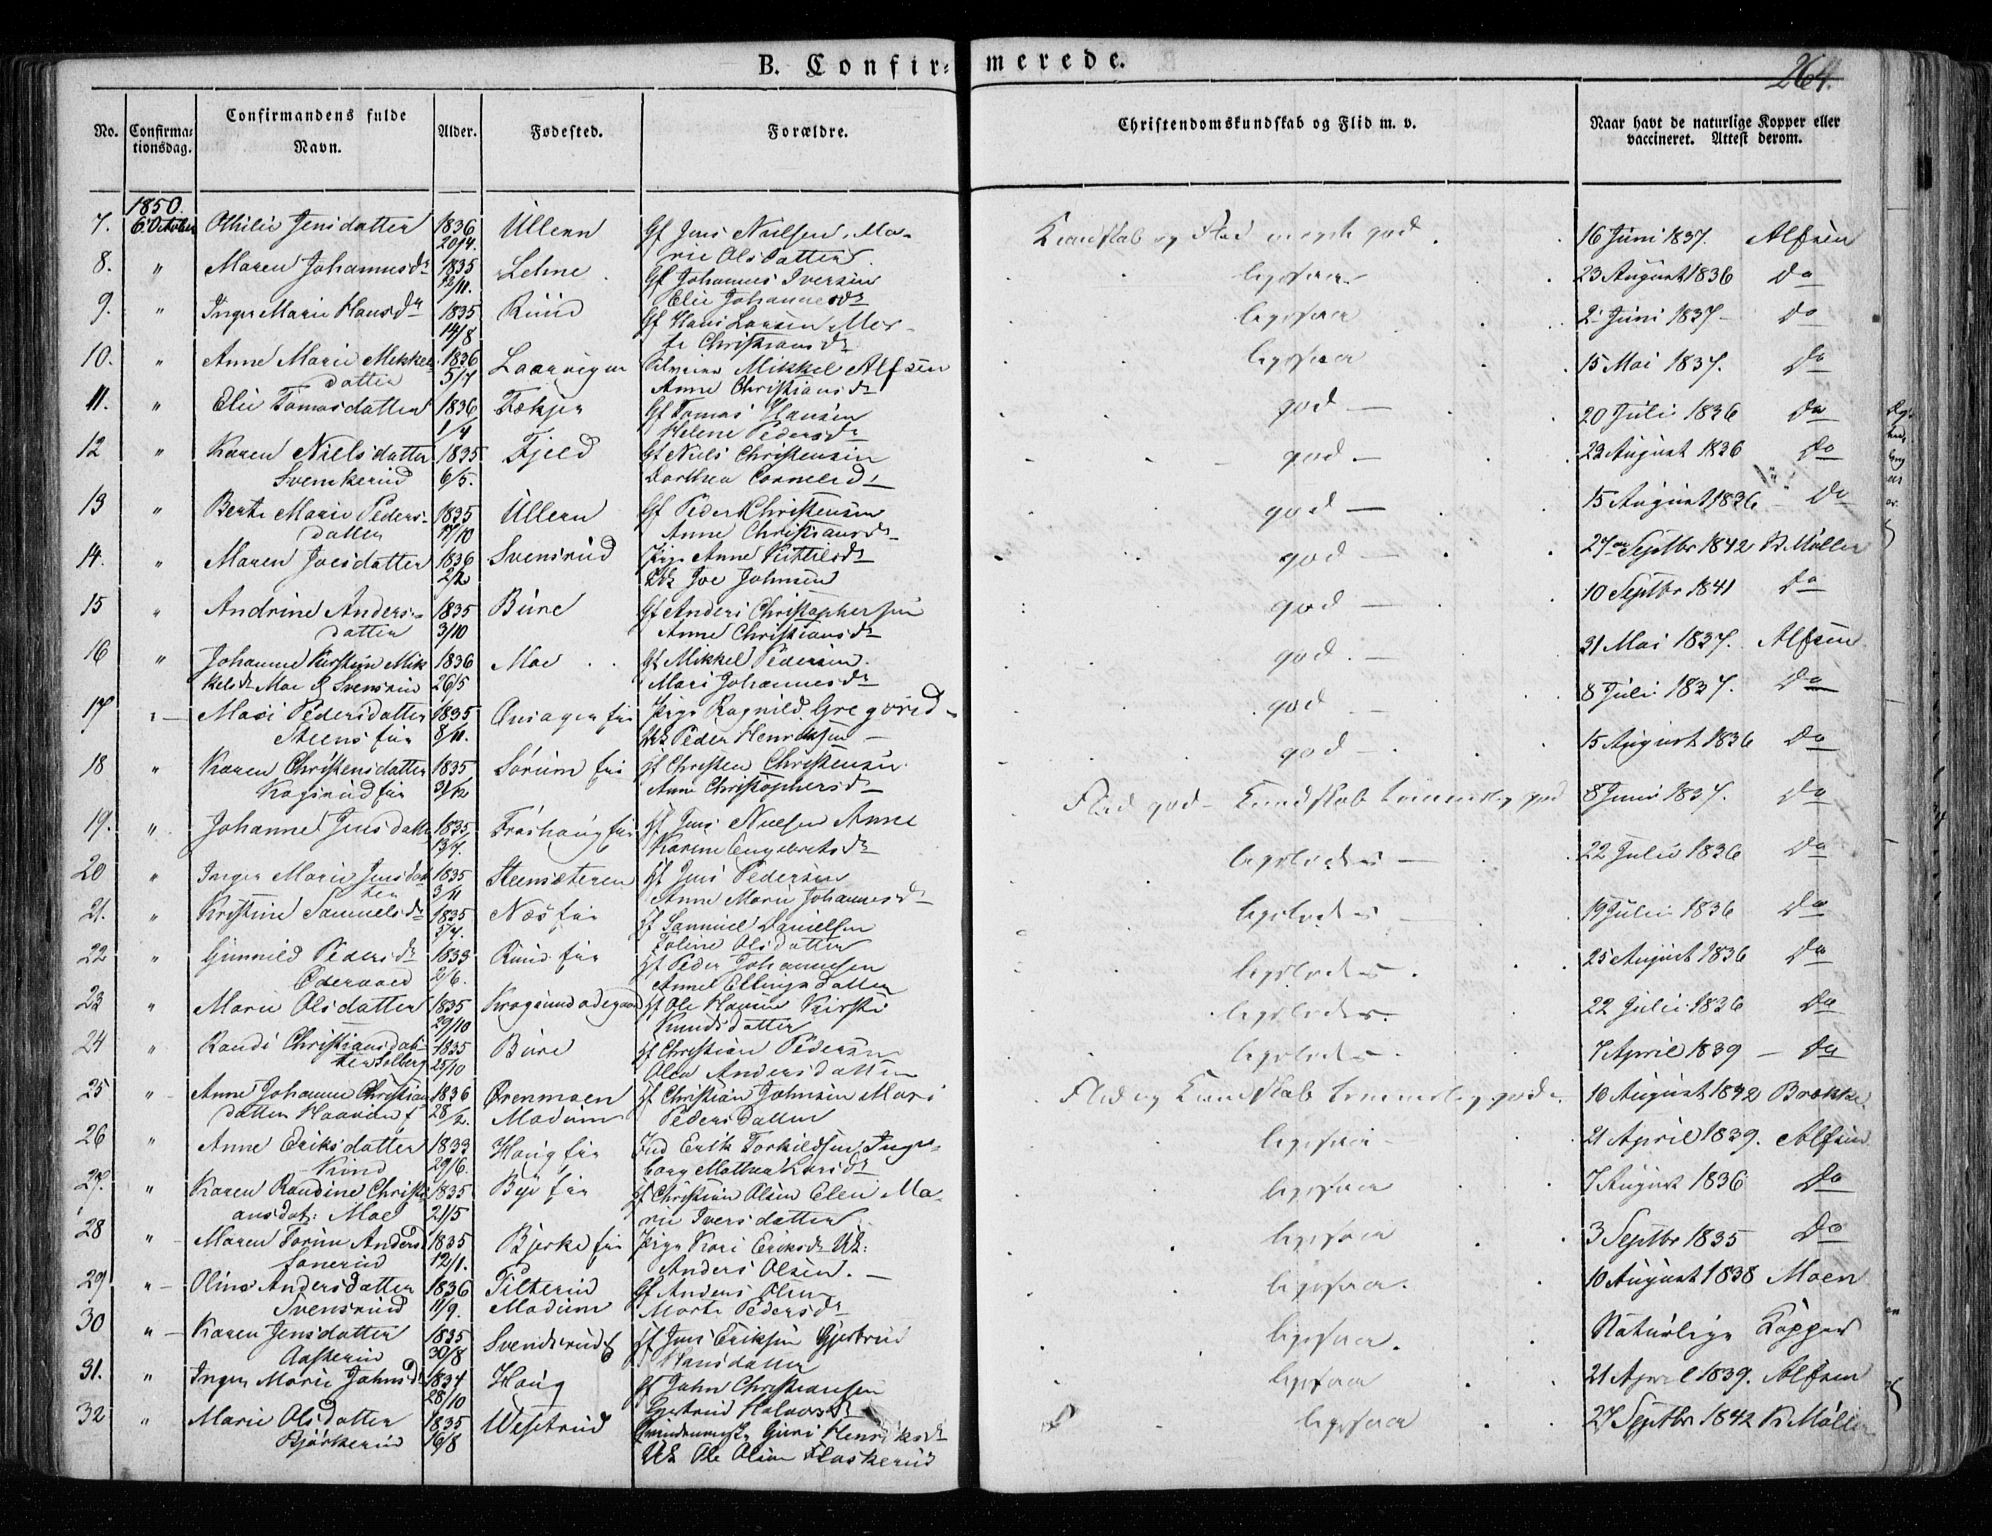 B. Confir-merede.
264.
No. Confirma-tionsdag. Confirmandens fulde Navn. Alder. Fødested. Forældre. Christendomskundskab og Flid m. v. Naar havt de naturlige Kopper eller vaccineret. Attest derom.
1850.
7. 6 October Othilie Jensdatter 1836 20/4. Ullern Gf Jens Nielsen, Ma-rie Olsdatter. Kundskab og Flid meget god. 16 Juni 1837. Alfsen
8. " Maren Johannesdr 1835 /11. Lehne Gf Johannes Iversen Elie Johannesdr ligesaa 23 August 1836 Do
9. " Inger Marie Hansdr 1835 14/8 Ruud Gf Hans Larsen Mar-te Christiansdr ligesaa 2 Juni 1837 Do
10. " Anne Marie Mikkels-datter 1836 5/7 Laarvigen Mikkel Alfsen Anne Christiansdr ligesaa 15 Mai 1837. Do
11. " Elie Tomasdatter 1836 1/4 Fækjer Gf Tomas Hansen Helene Pedersdr god 20 Juli 1836 Do
12 " Karen Nielsdatter Svenskerud 1835 6/5. Fjeld Gf Niels Christensen Dorthea Cornelsdr god 23 August 1836 Do
13 " Berte Marie Peders-datter 1835 /10 Ullern Gf Peder Christensen Anne Christiansdr god 15 August 1836 Do
14. " Maren Joesdatter 1836 2/2 Svensrud Pige Anne Kittilsdr Uk Joe Johnsen god 27 Septbr 1842 K. Møller
15 " Andrine Anders-datter 1835 3/10 Bure Gf Anders Christophersen Anne Christiansdr god 10 Septbr 1841 Do
16 " Johanne Kirstine Mik-kelsdr Moe & Svensrud 1836 26/5 Moe Gf Mikkel Pedersen Mari Johannesdr god 31 Mai 1837. Alfsen
17 " Mari Pedersdatter Steens 1835 8/11. Onsager Pige Ragnild Gregorid- Uk Peder Henriksen god 8 Juli 1837. Do
18 " Karen Christensdatter 1835 31/12 Sørum Hf Christen Christensen Anne Christophersdr god 15 August 1836 Do
19. " Johanne Jensdatter 1835 13/7. Frøshaug Hf Jens Nielsen Anne Karine Engebretsdr Flid god - Kundskab temmelig god 8 Juni 1837. Do
20 " Inger Marie Jensdat-ter 1835 3/11 Steensæteren Hf Jens Pedersen Anne Marie Johannesdr ligeledes 22 Juli 1836 Do
21. " Kristine Samuelsdr 1835 5/7. Næs Hf Samuel Danielsen Toline Olsdatter ligeledes 19 Juli 1836 Do
22 " Gunnild Pedersdr 1833 2/6. Ruud Hf Peder Johannesen Anne Ellingsdatter ligeledes. 25 August 1836 Do
23 " Marie Olsdatter 1835 29/10 Hf Ole Hansen Kirsti Knudsdatter ligeledes. 22 Juli 1836 Do
24 " Randi Christiansdat-ter Solberg 1835 25/10 Bure Hf Christian Pedersen Olea Andersdatter ligeledes. 7 April 1839 Do
25 " Anne Johanne Christian-datter 1836 28/2. Ørenmoen Modum Hf Christian Johnsen Mari Pedersdatter Flid og Kundskab temmelig gode. 10 August 1842 Brokke
26 " Anne Eriksdatter 1833 29/6. Haug Ind Erik Torkildsen Inge-borg Mathea Larsdr ligesaa 21 April 1839. Alfsen
27. " Karen Randine Christi-ansdat: Moe 1835 21/5 Bye Hf Christian Olsen Elen Ma-rie Iversdatter ligesaa 7 August 1836 Do
28 " Maren Torine Anders- Sonerud 1835 12/1. Bjerke Pige Kari Eriksdr Uk: Anders Olsen. ligesaa 3 Septbr 1835 Do
29 " Oline Andersdatter Svensrud 1836 11/9. Tilterud Modum Gf Anders Olsen Marte Pedersdr ligesaa. 10 August 1838 Moen
30 " Karen Jensdatter Aaskerud 1835 30/8 Svendsrud Hf Jens Eriksen Gjertrud Hansdatter ligesaa. Naturlige Kopper
31. " Inger Marie Johnsdr 1834 28/10 Haug Gf John Christiansen Gjertrud Halvorsdr ligesaa 21 April 1839. Alfsen
32 " Marie Olsdatter Bjørkerud 1835 16/8 Westrud Guri Henriksdr Uk Ole Olsen Flaskerud ligesaa 27 Septbr 1842 K. Møller